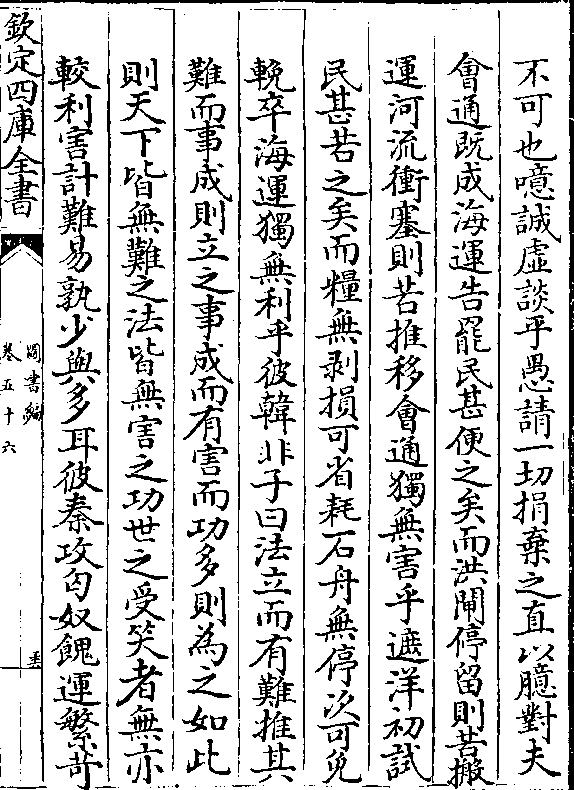 不可也噫誠虛談乎愚請一切捐棄之直以臆對夫
會通既成海運告罷民甚便之矣而洪閘停留則苦搬
運河流衝塞則苦推移會通獨無害乎遮洋初試
民甚苦之矣而糧無剥損可省耗石舟無停次可免
輓卒海運獨無利乎彼韓非子曰法立而有難推其
難而事成則立之事成而有害而功多則為之如此
則天下皆無難之法皆無害之功世之受笑者無亦
較利害計難易孰少與多耳彼秦攻匈奴餽運繁苛
欽定四庫全書
圖書編
卷五十六